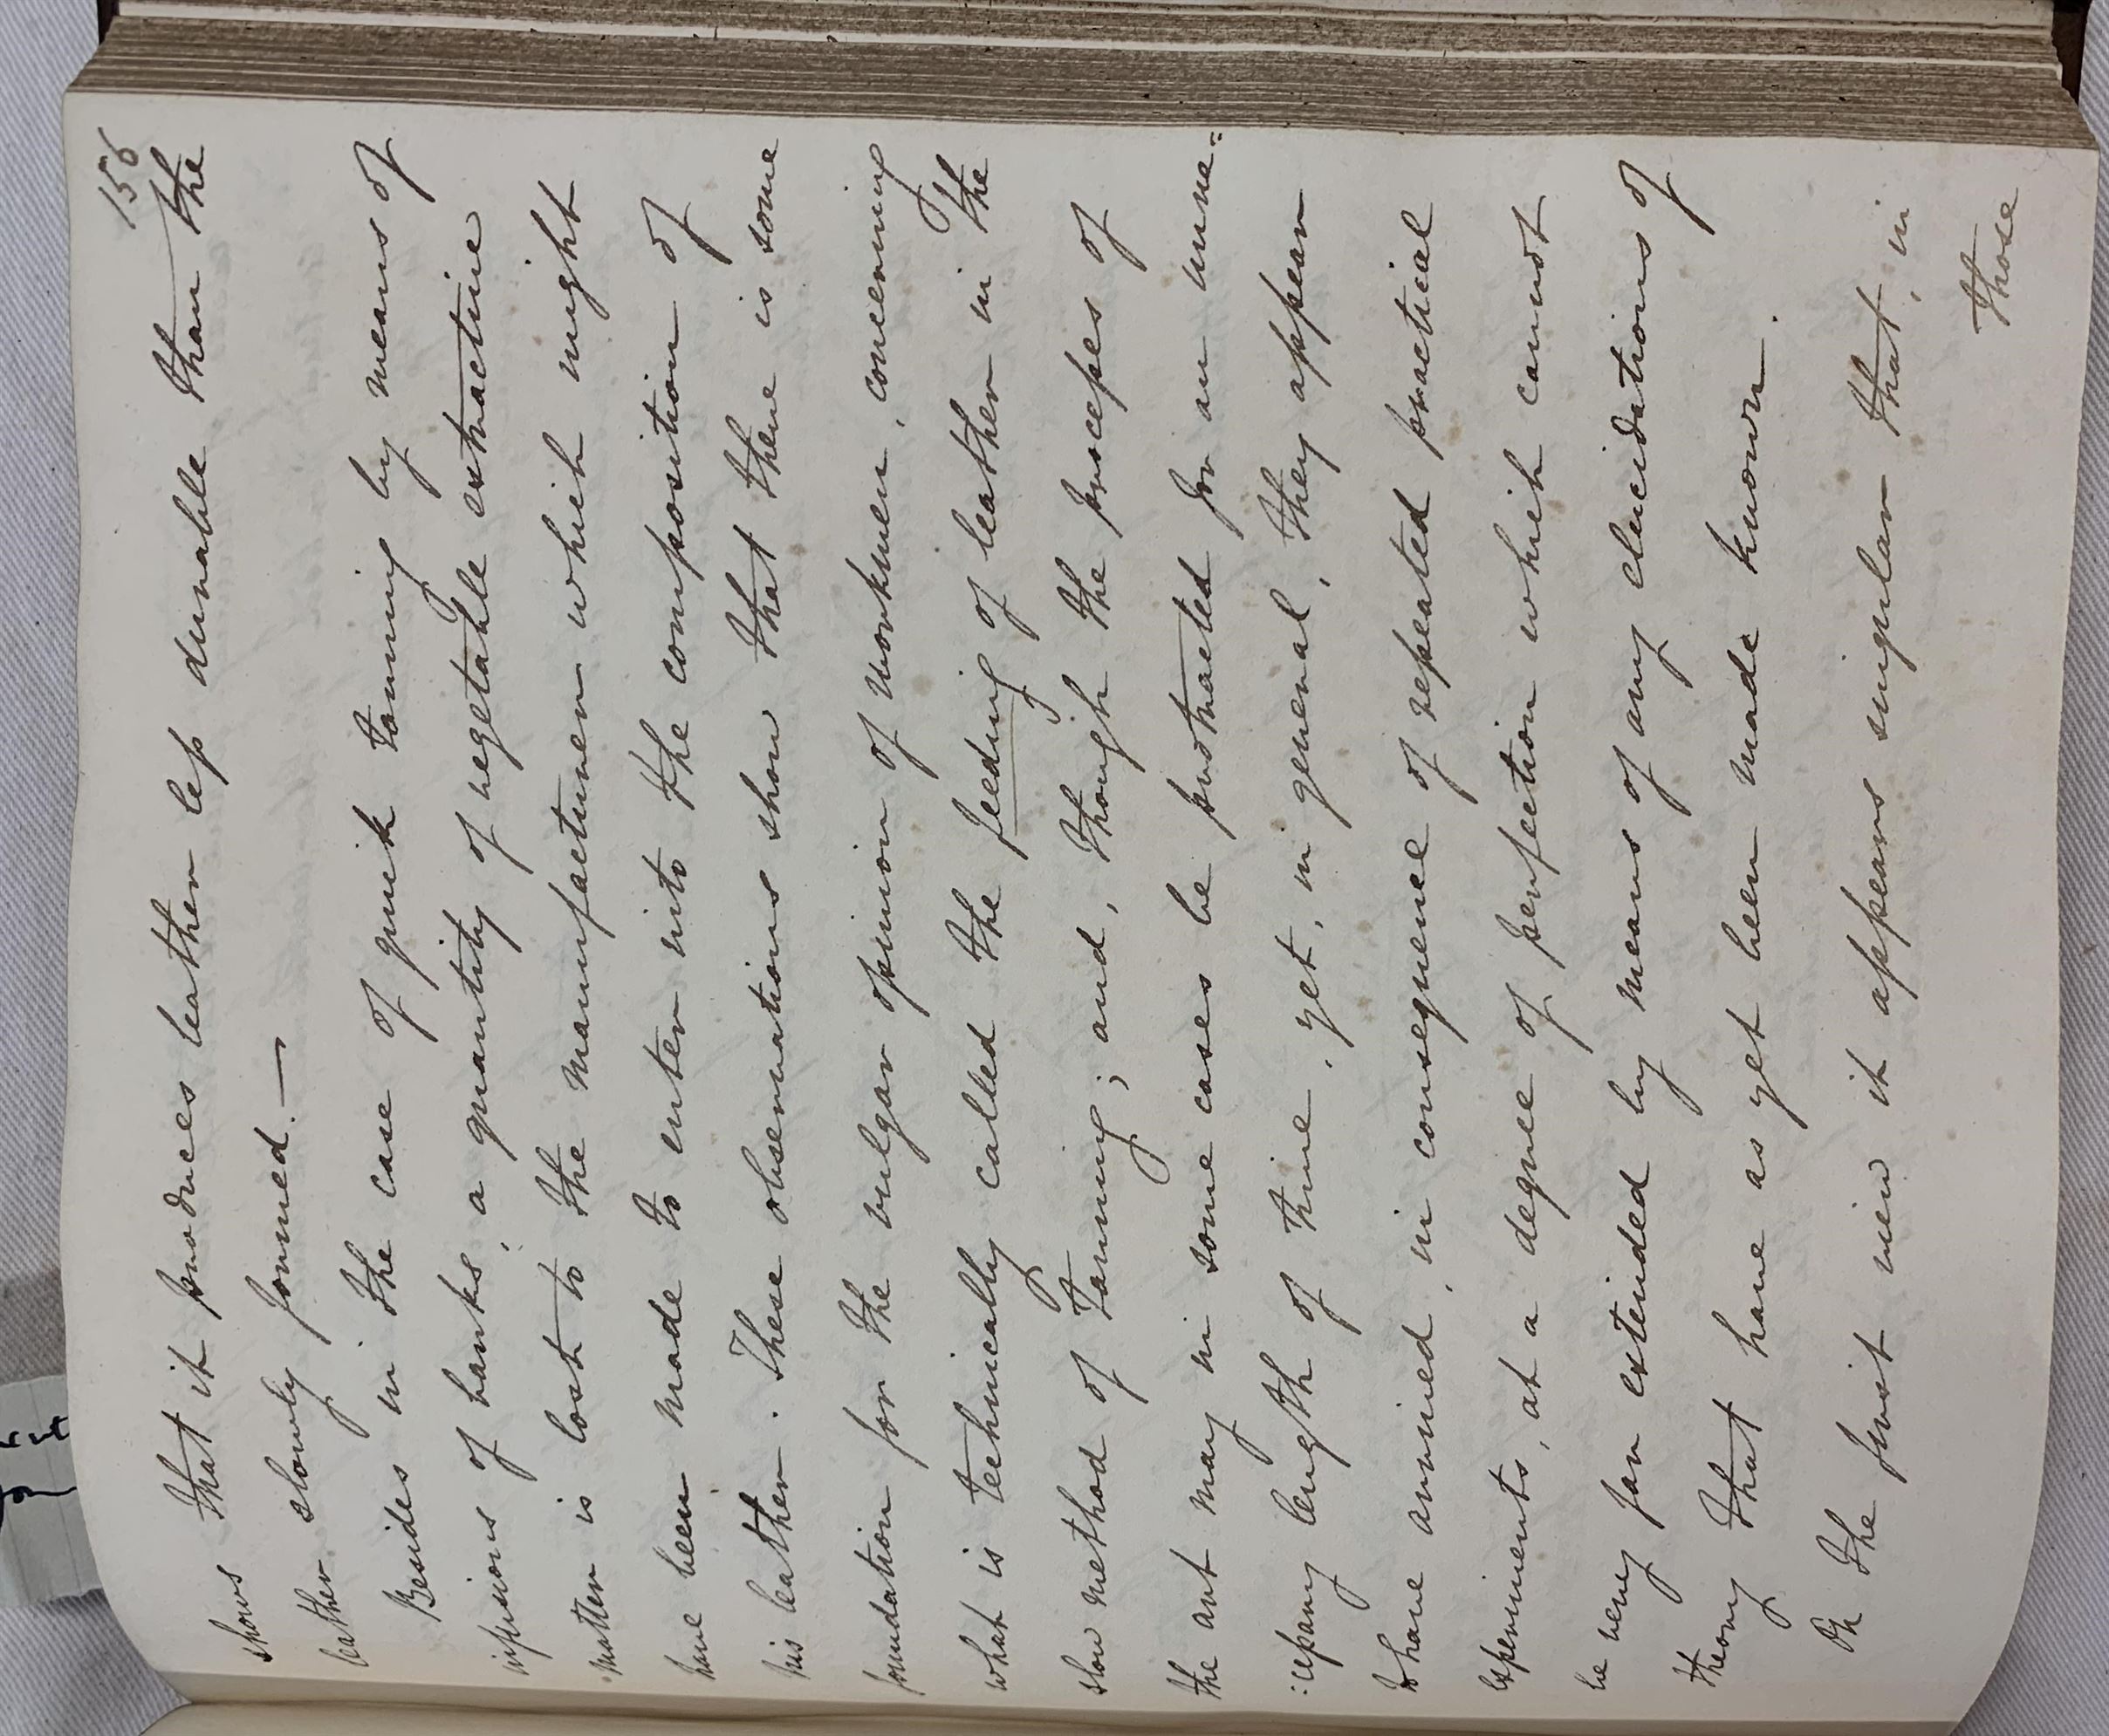 156
shows that it produces leather less durable than the
leather slowly formed. —
Besides in the case of quick tanning by means of
infusions of barks, a quantity of vegetable extractive
matter is lost to the manufacturer which might
have been made to enter into the composition of
his leather. These observations show that there is some
foundation for the vulgar opinion of workmen, concerning
what is technically called the feeding of leather in the
slow method of Tanning; and, though the processes of
the art may in some cases be protracted for an unne=
:cessary length of time, yet, in general, they appear
to have arrived, in consequence of repeated practical
experiments, at a degree of perfection which cannot
be very far extended by means of any elucidations of
theory that have as yet been made known.
On the first view it appears singular that, in
those